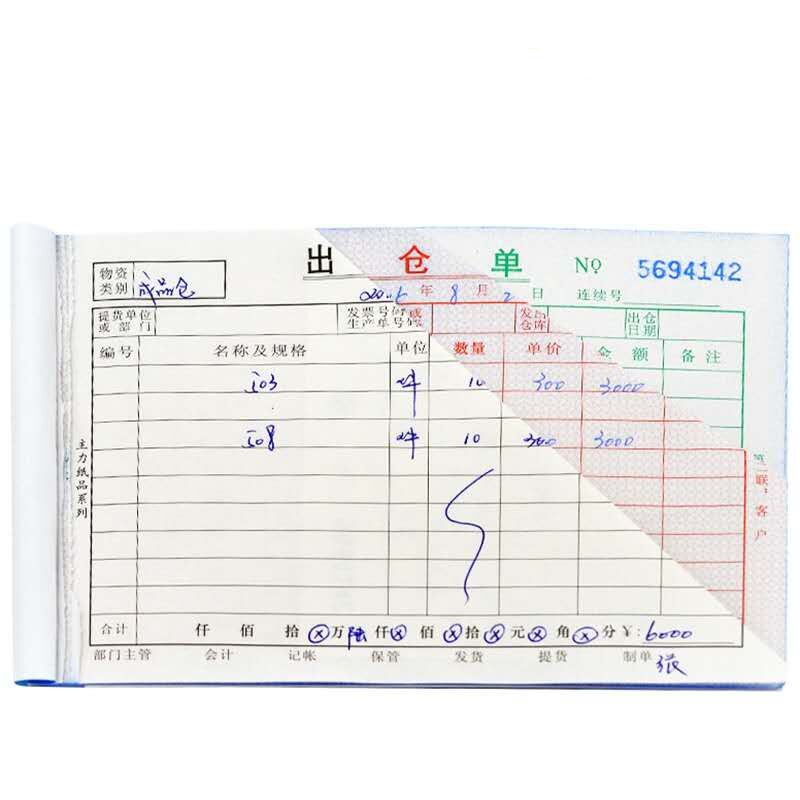 出 仓 单 NO 5694142
物资类别 成品仓
年 8 月 2 日 连续号
提货单位或部门 发票号码或生产单号码 发出仓库 出仓日期
编号 名称及规格 单位 数量 单价 金额 备注
503 件 10 300 3000
508 件 10 300 3000
主力纸品系列
第二联:客户
合计 仟 佰 拾 ⓧ 万 陆 仟 ⓧ 佰 ⓧ 拾 ⓧ 元 ⓧ 角 ⓧ 分 ¥: 6000
部门主管 会计 记帐 保管 发货 提货 制单 张